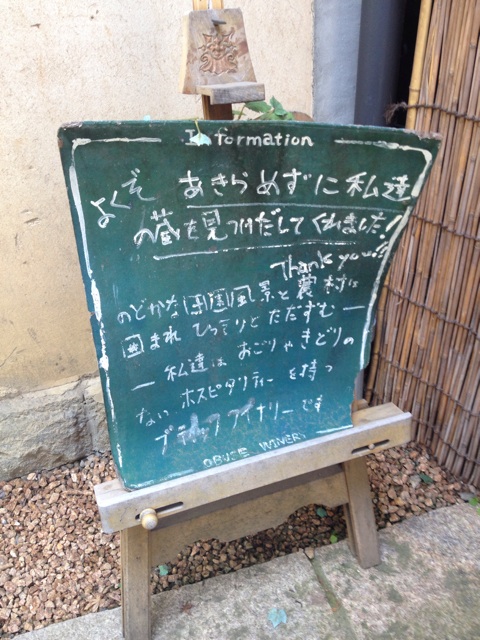 Information
よくぞ あきらめずに私達
の蔵を見つけだしてくれました!
Thank you!!
のどかな田園風景と農村に
囲まれ ひっそりとたたずむ ー
ー 私達は おごりやきどりの
ない ホスピタリティーを持つ
ブティックワイナリーです
OBUSE WINERY